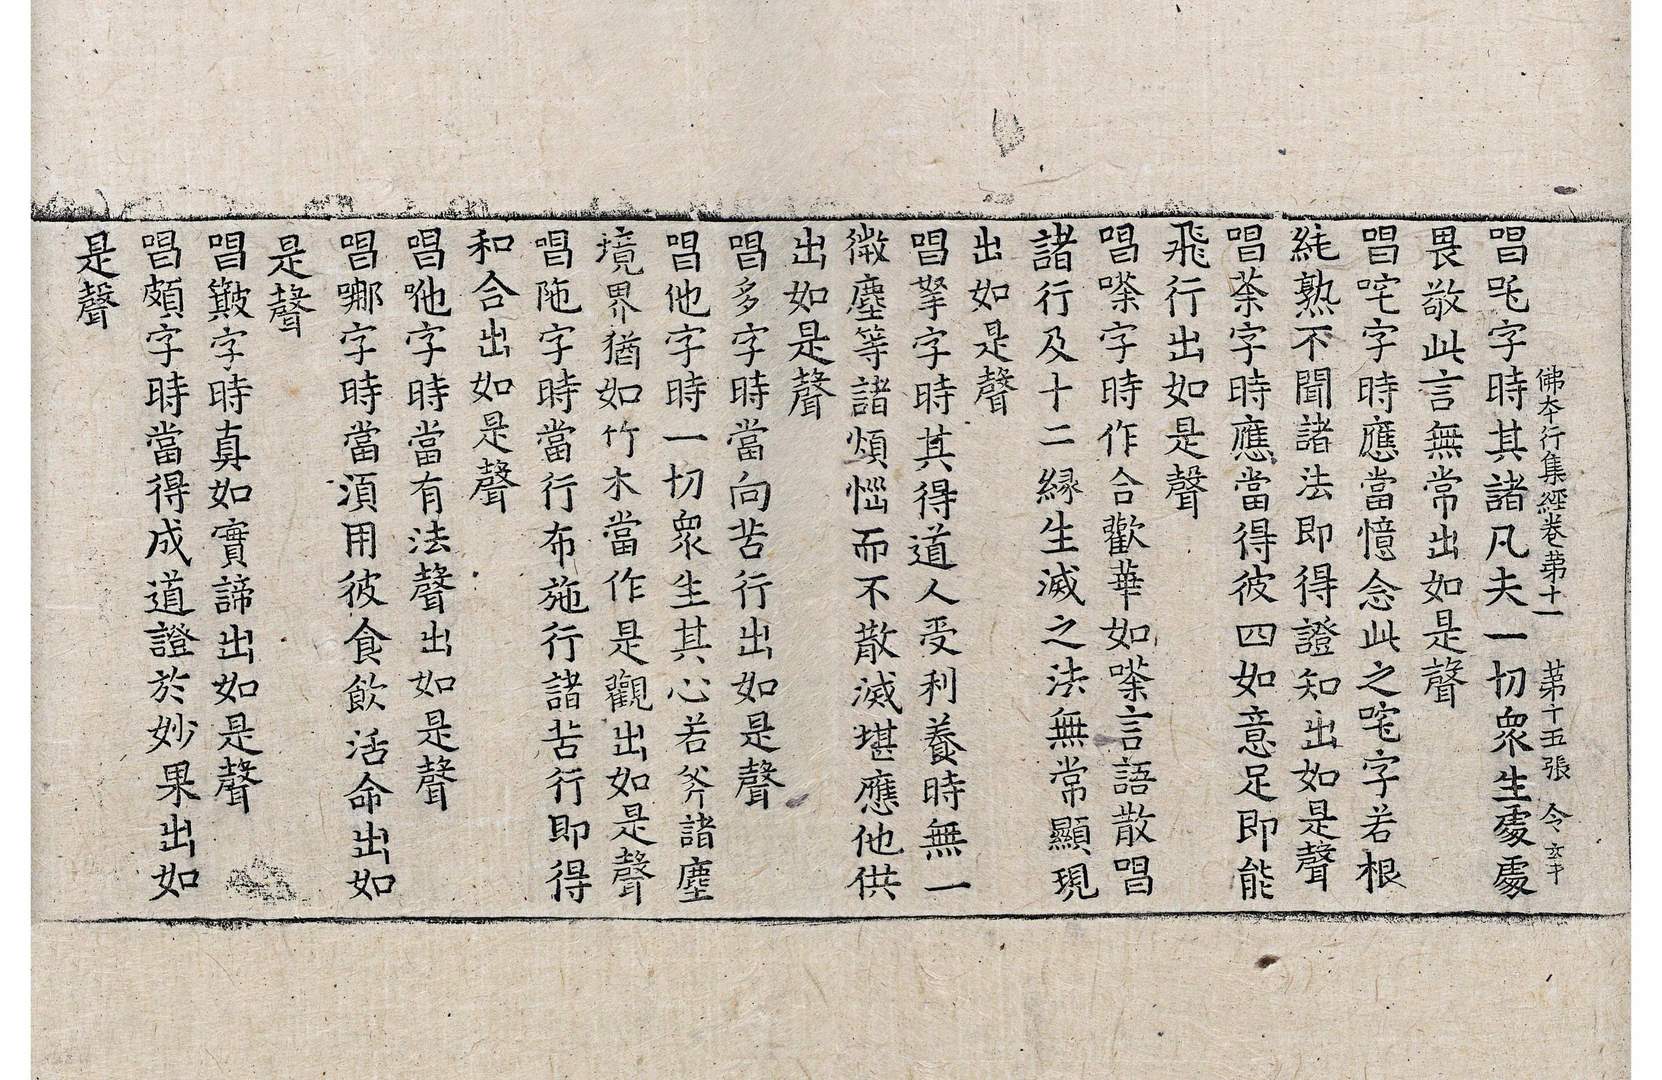 佛夲行集經卷苐十一　苐十五張　令
唱吒字時其諸凡夫一切衆生處處
畏敬此言無常出如是聲
唱咤字時應當憶念此之咤字若根
純熟不聞諸法即得證知出如是聲
唱荼字時應當得彼四如意足即能
飛行出如是聲
唱嗏字時作合歡華如嗏言語散唱
諸行及十二縁生滅之法無常顯現
出如是聲
唱拏字時其得道人受利養時無一
微塵等諸煩惱而不散滅堪應他供
出如是聲
唱多字時當向苦行出如是聲
唱他字時一切衆生其心若斧諸塵
境界猶如竹木當作是觀出如是聲
唱陁字時當行布施行諸苦行即得
和合出如是聲
唱咃字時當有法聲出如是聲
唱哪字時當湏用彼食飲活命出如
是聲
唱簸字時真如實諦出如是聲
唱頗字時當得成道證於妙果出如
是聲